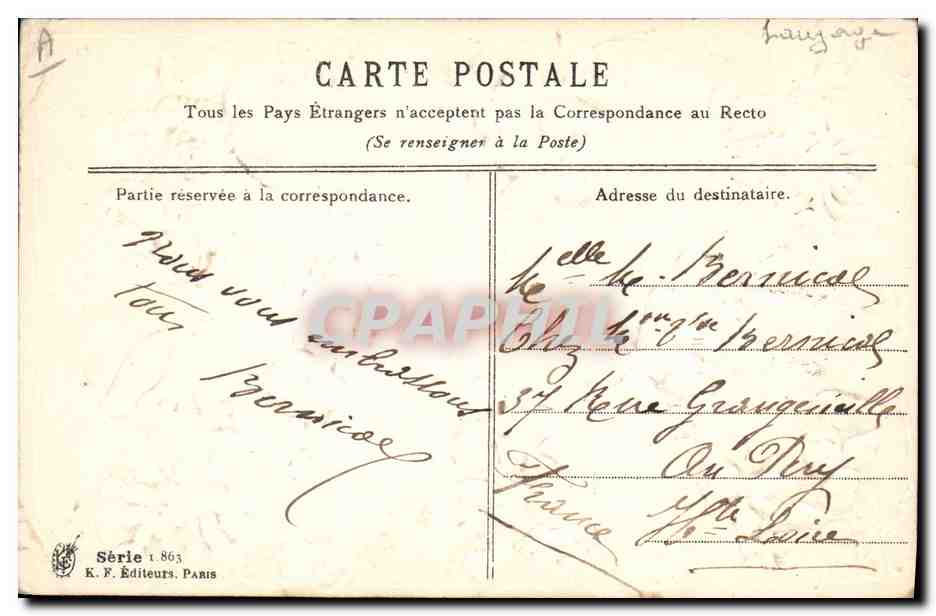 A
Langage
CARTE POSTALE
Tous les Pays Étrangers n'acceptent pas la Correspondance au Recto
(Se renseigner à la Poste)
Partie réservée à la correspondance.
Nous vous embrassons
tous
Bernicol
Adresse du destinataire.
Melle M. Bernicol
Chez Me Bernicol
37 Rue Grangevieille
Au Puy
Hte Loire
France
CPAPHIL
Série 1.863
K. F. Éditeurs. PARIS